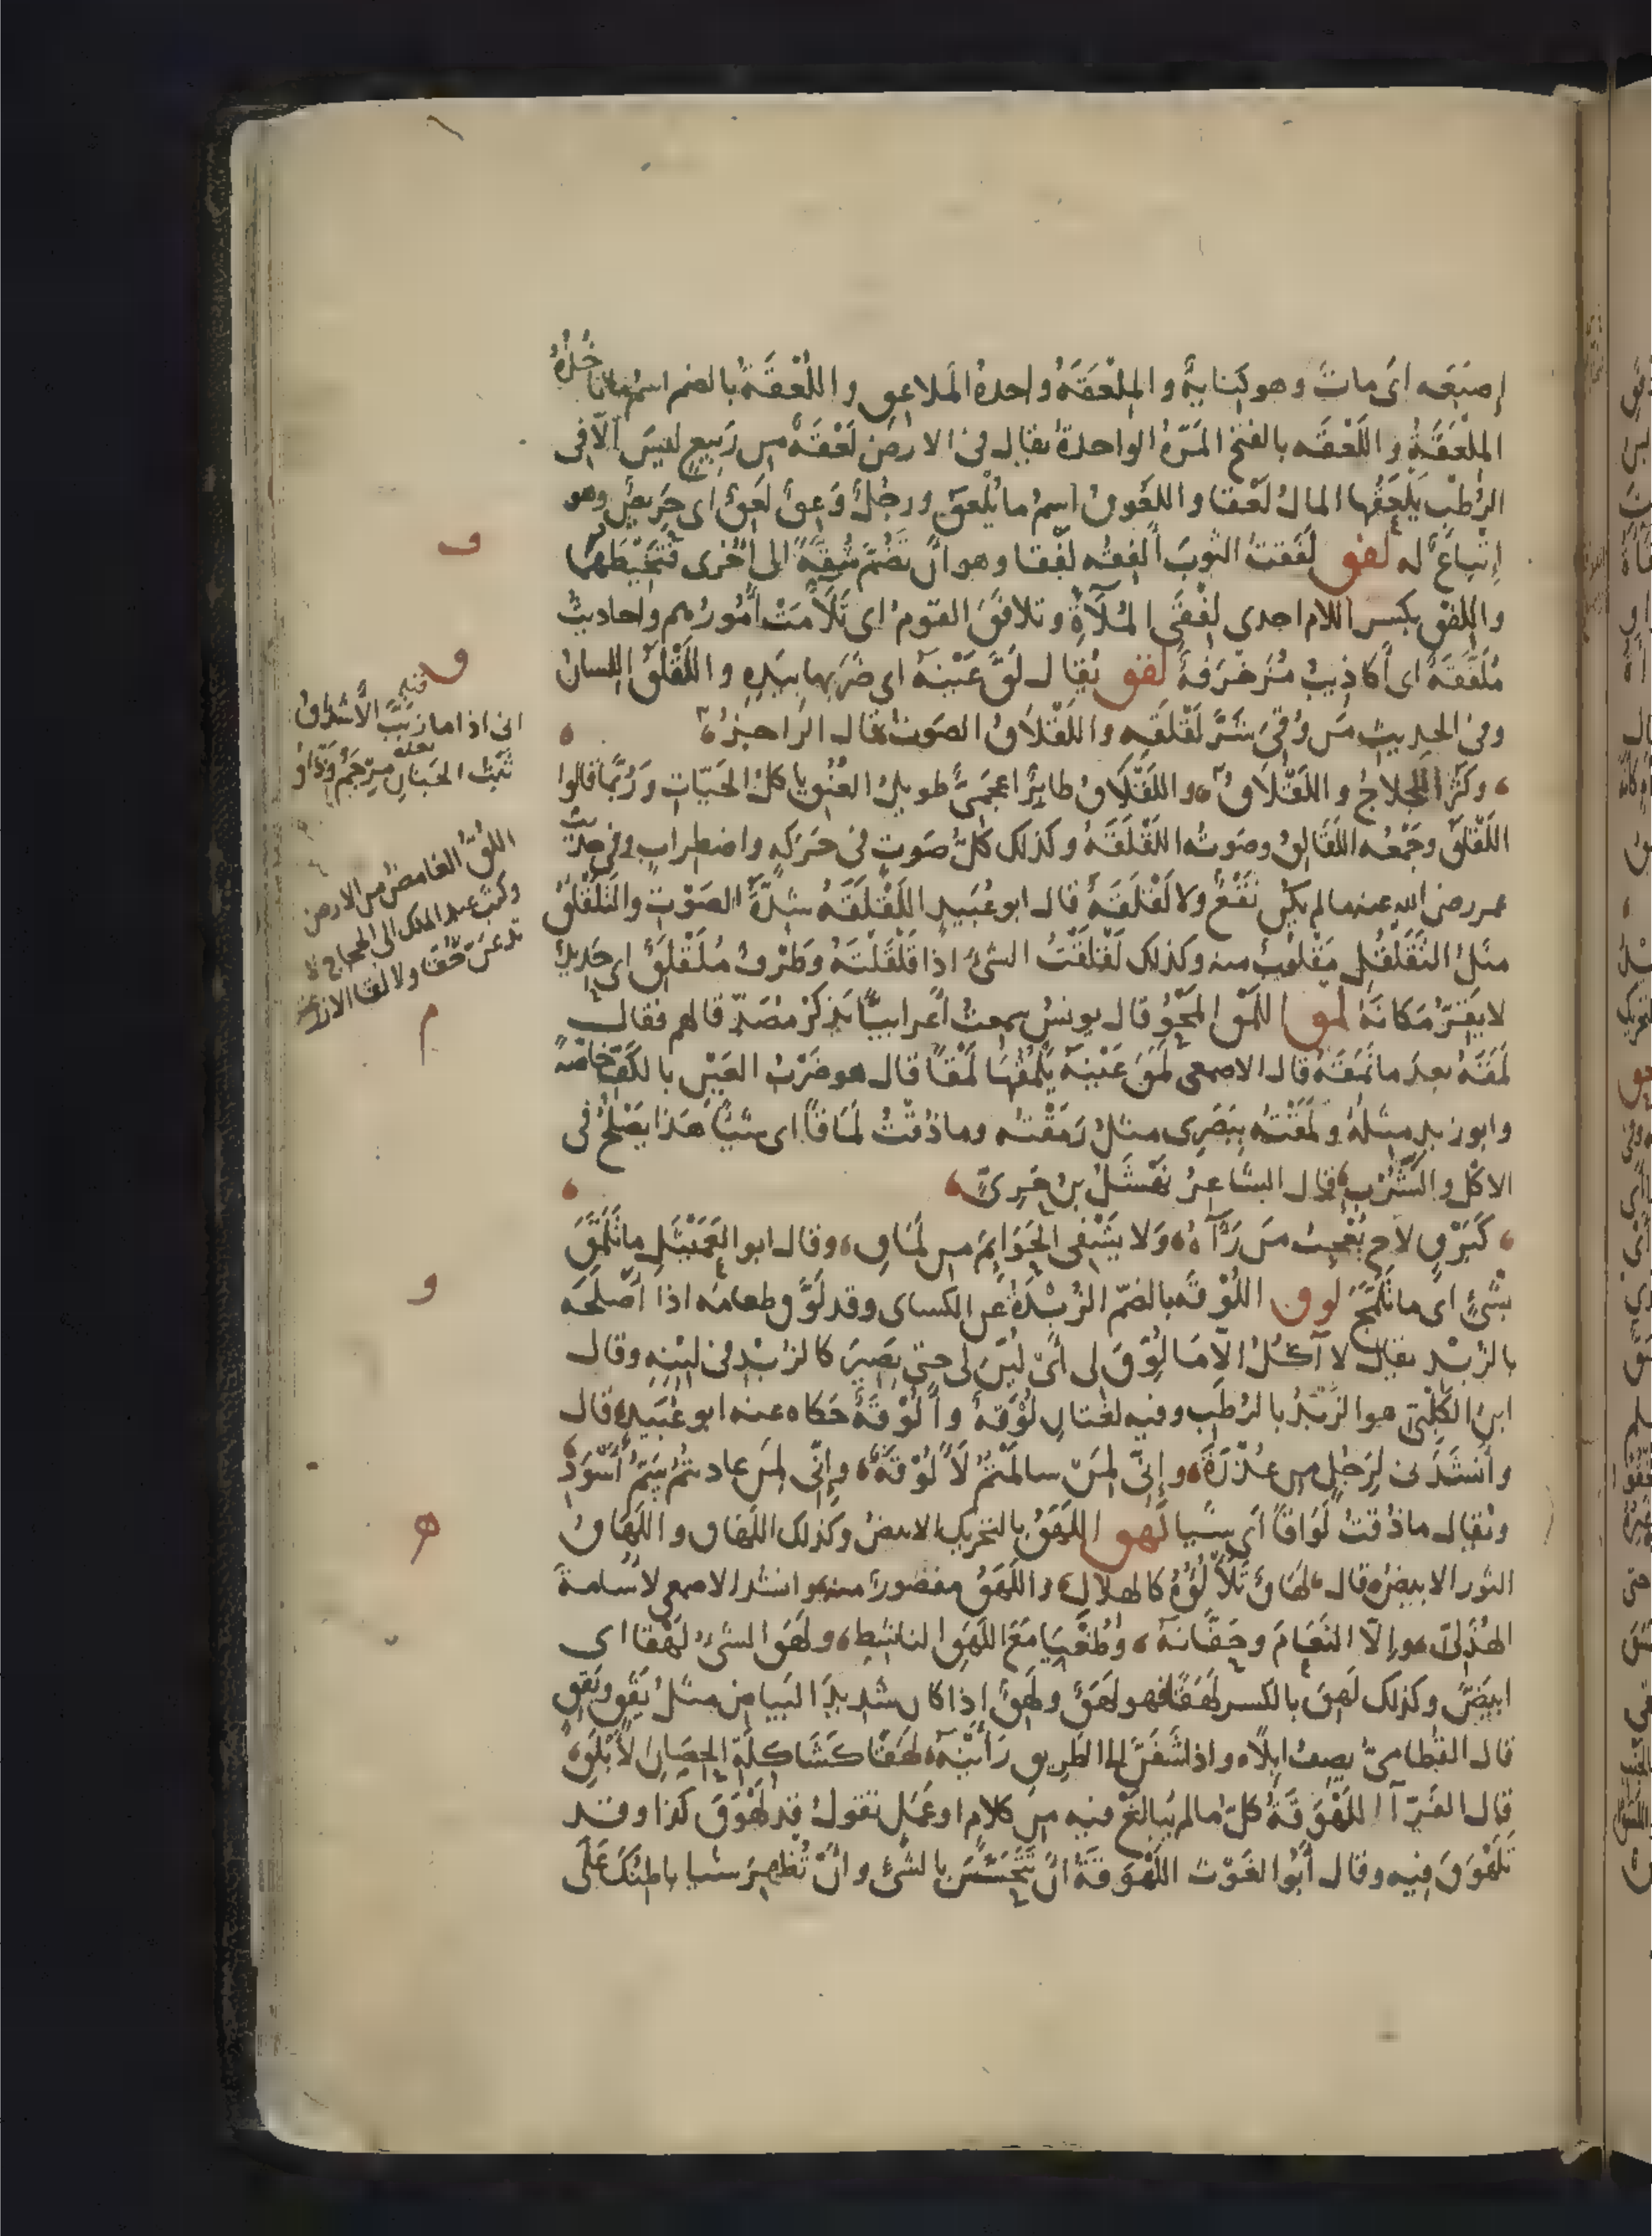 إصبَعه اى مات وهو كناية والمِلْعَقَةُ واحدةُ المَلاعِق واللُعْقَةُ بالضم اسمُ ما تأخذه
المِلْعَقَةُ واللَعْقَه بالفتح المَرّةُ الواحدةُ يقال فى الارض لَعْقَةٌ من رَبِيعٍ ليسَ الّا فى
الرُطْبِ يَلْعَقُها المالُ لَعْقا واللَعُوقُ اسمُ ما يُلْعَق ورجُلٌ وَعِقٌ لَعِقٌ اى حَرِيصٌ وهو
إتْباعٌ له لفق لَفَقتُ الثوبَ أَلفِقُه لَفْقا وهو أنْ تَضُمَّ شُقّةً الى أُخْرى فتَخيطَهما
واللِفْق بكسر اللام احدى لِفْقَىِ المُلَآءَةِ وتلافَقَ القومُ اى تَلَآءَمَتْ أُمُورُهم واحاديثُ
مُلَفَّقَةٌ اى أكاذِيبُ مُزَخْرَفةٌ لقق يُقال لَقَّ عَيْنَهُ اى ضَرَبها بيَدِهِ واللَقْلَقُ اللسانُ
وفى الحديث مَن وُقِىَ شَرَّ لَقْلَقِه واللَقْلَاقُ الصَوتُ قال الراجزُ
وكَثُرَ اللَجْلاجُ واللَقْلَاقُ واللَقْلَاقُ طائِرٌ اعجَمىٌّ طويلُ العُنُقِ يا كلُ الحَيّات ورُبّما قالوا
اللَقْلَقُ وجَمْعه اللَقَالِقُ وصَوتُه اللَقْلَقَةُ وكذلك كلُّ صَوتٍ فى حَرَكةٍ واضطرابٍ وفى حديث
عمر رضى الله عنه ما لم يكُن نَقْعٌ ولا لَقْلَقَةٌ قال ابو عُبَيدٍ اللَقْلَقَةُ شِدّةُ الصَوْتِ والتَلَقْلُقُ
مثلُ التَقَلْقُلِ مَقْلُوبٌ منه وكذلك لَقْلَقْتُ الشئَ اذا قَلْقَلْتَهُ وطَرْفٌ مُلَقْلَقٌ اى حَديدٌ
لا يَقِرُّ مَكانَهُ لمق اللَمْقُ المَحْوُ قال يونسُ سمعتُ أعرابيًّا يَذكُرُ مُصَدِّقا لهم فقال
لَمَقَهُ بعدَ ما نَمَقَهُ قال الاصمعى لَمَقَ عَيْنَهُ يَلْمُقُها لَمْقًا قال هو ضَرْبُ العَيْنِ بالكَفّ خاصّةً
وابو زيدٍ مِثلهُ ولَمَقْتُه بِبَصَرِى مثلُ رَمَقْتُه وما ذُقْتُ لَمَاقًا اى شَيْئًا هذا يَصْلُحُ فى
الاكْل والشُرْب قال الشاعرُ نَهْشَلُ بن حَرِىّ
كَبَرْقٍ لاحَ يُعْجِبُ مَن رَآهُ ولا يَشْفِى الحَوَائِمَ من لَمَاقِ وقال ابو العَمَيْثَلِ ما تَلَمَّقَ
بشَئٍ اى ما تَلَمَّجَ لوق اللُوْقَه بالضمّ الزُبْدَةُ عن الكساى وقد لَوَّقَ طعامَه اذا أصْلَحَه
بالزُبْدِ يقال لا آكُلُ الّا مَا لُوِّقَ لى اىْ لُيِّنَ لى حتى يَصِيرَ كالزُبْدِ فى لِينِه وقال
ابنُ الكَلْبِىّ هو الزُبْدُ بالرُطَبِ وفيه لغتانِ لُوْقَةٌ وأَلُوْقَةٌ حَكاه عنه ابو عُبَيدٍ قال
وأَنْشَدَنى لرَجُلٍ من عُذْرَةَ وإنّى لمَن سالَمْتُمُ لَأَلُوْقَةٌ وإنّى لمَن عاديتُمُ سَمُّ أَسْوَدِ
ويُقال ماذُقتُ لَوَاقًا اى شيا لهق اللَهَقُ بالتحريك الابيضُ وكذلك اللَهَاق واللِهَاقُ
الثور الابيضُ قال لَهَاقٌ تَلَأْلُؤُهُ كالهلالِ واللَهَقُ مقصورٌ منه وانشد الاصمعى لأُسامةَ
الهُذَلىّ وإلّا النَعَامَ وحَفّانَهُ وطُغْيَا مَعَ اللَهَقِ الناشِطِ ولَهَقَ الشئُ لَهْقا اى
ابيَضَّ وكذلك لَهِقَ بالكسر لَهَقًا فهو لَهَقٌ ولَهِقٌ إذا كان شديدَ البَيَاض مثلُ يَقَقٍ ويَقِقٍ
قال القُطامىّ يصفُ ابِلًا واذا شَفَنَّ الى الطَرِيقِ رَأَيْنَهُ لَهَقًا كَشَاكِلَةِ الحِصَانِ الأَبْلَقِ
قال الفَرّآءُ اللَهْوَقَةُ كلُّ ما لم يُبالَغْ فيه من كلامٍ او عَمَلٍ تقولُ قد لَهْوَقَ كذا وقد
تَلَهْوَقَ فيه وقال أبُو الغَوْث اللَهْوَقَةُ انْ تَتَحَسَّنَ بالشئ وانْ تُظهِرَ شيا باطنُكَ عَلَى
ف
ق
انى اذا ما زَبَّبَ الأشداقُ
ثَبْتُ الجَنانِ مِرْجَمٌ وَدّاقُ
اللُقُّ الغامضُ من الارض
وكتب عبد الملك الى الحجاج لا
تدعنّ خُقّا ولا لُقّا الا زرعته
م
و
ه